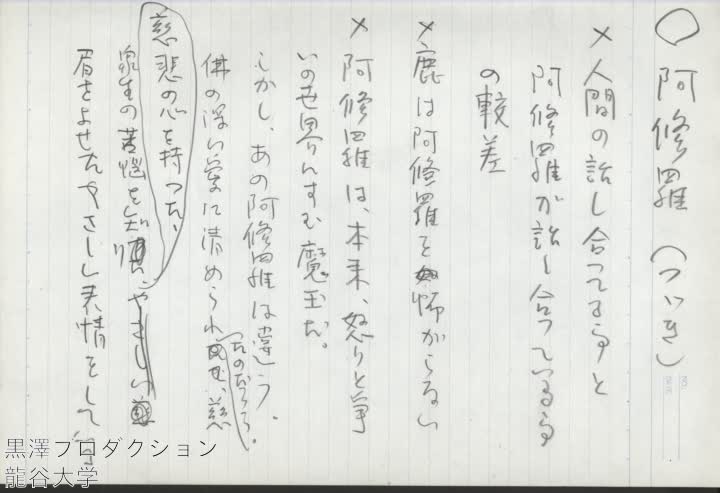 ○ 阿修羅 (つゞき)
× 人間の話し合ってる声と
阿修羅が話し合っている声
の較差
× 鹿は阿修羅を怖がらない
× 阿修羅は、本来、怒りと争
いの世界にすむ魔王だ。
しかし、あの阿修羅は違う。
佛の深い愛に清められ
たのだろう。
慈悲の心を持った、
衆生の苦悩を知り、やさしい
眉をよせたやさしい表情をして
黒澤プロダクション
龍谷大学